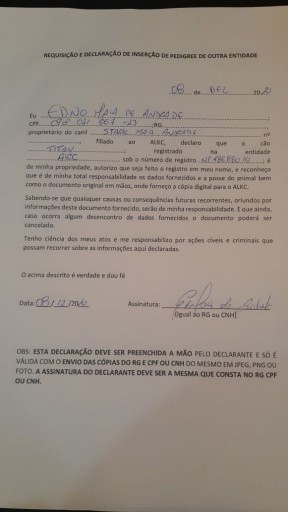 REQUISIÇÃO E DECLARAÇÃO DE INSERÇÃO DE PEDIGREE DE OUTRA ENTIDADE
08 de DEZ 2020
Eu EDNO MAIA DE ANDRADE
CPF RG
proprietário do canil STARK MAIA ANDRADE nº
filiado ao ALKC, declaro que o cão
TITAN registrado na entidade
sob o número de registro é
de minha propriedade, autorizo que seja feito o registro em meu nome, e reconheço
que é de minha total responsabilidade os dados fornecidos e a posse do animal bem
como o documento original em mãos, onde forneço a cópia digital para o ALKC.
Sabendo-se que qualquer causas ou consequências futuras recorrentes, oriundos por
informações deste documento fornecido, serão de minha responsabilidade. E que ainda,
caso ocorra algum desencontro de dados fornecidos o documento poderá ser
cancelado.
Tenho ciência dos meus atos e me responsabilizo por ações cíveis e criminais que
possam recorrer sobre as informações aqui declaradas.
O acima descrito é verdade e dou fé
Data: 08/12/2020 Assinatura:
(Igual do RG ou CNH)
OBS: ESTA DECLARAÇÃO DEVE SER PREENCHIDA A MÃO PELO DECLARANTE E SÓ É
VÁLIDA COM O ENVIO DAS CÓPIAS DO RG E CPF OU CNH DO MESMO EM JPEG, PNG OU
FOTO. A ASSINATURA DO DECLARANTE DEVE SER A MESMA QUE CONSTA NO RG CPF
OU CNH.